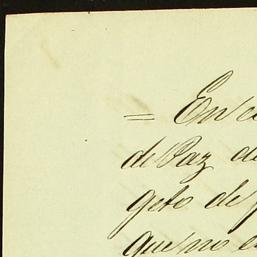 = En c
de Paz de
geto de p
que no e